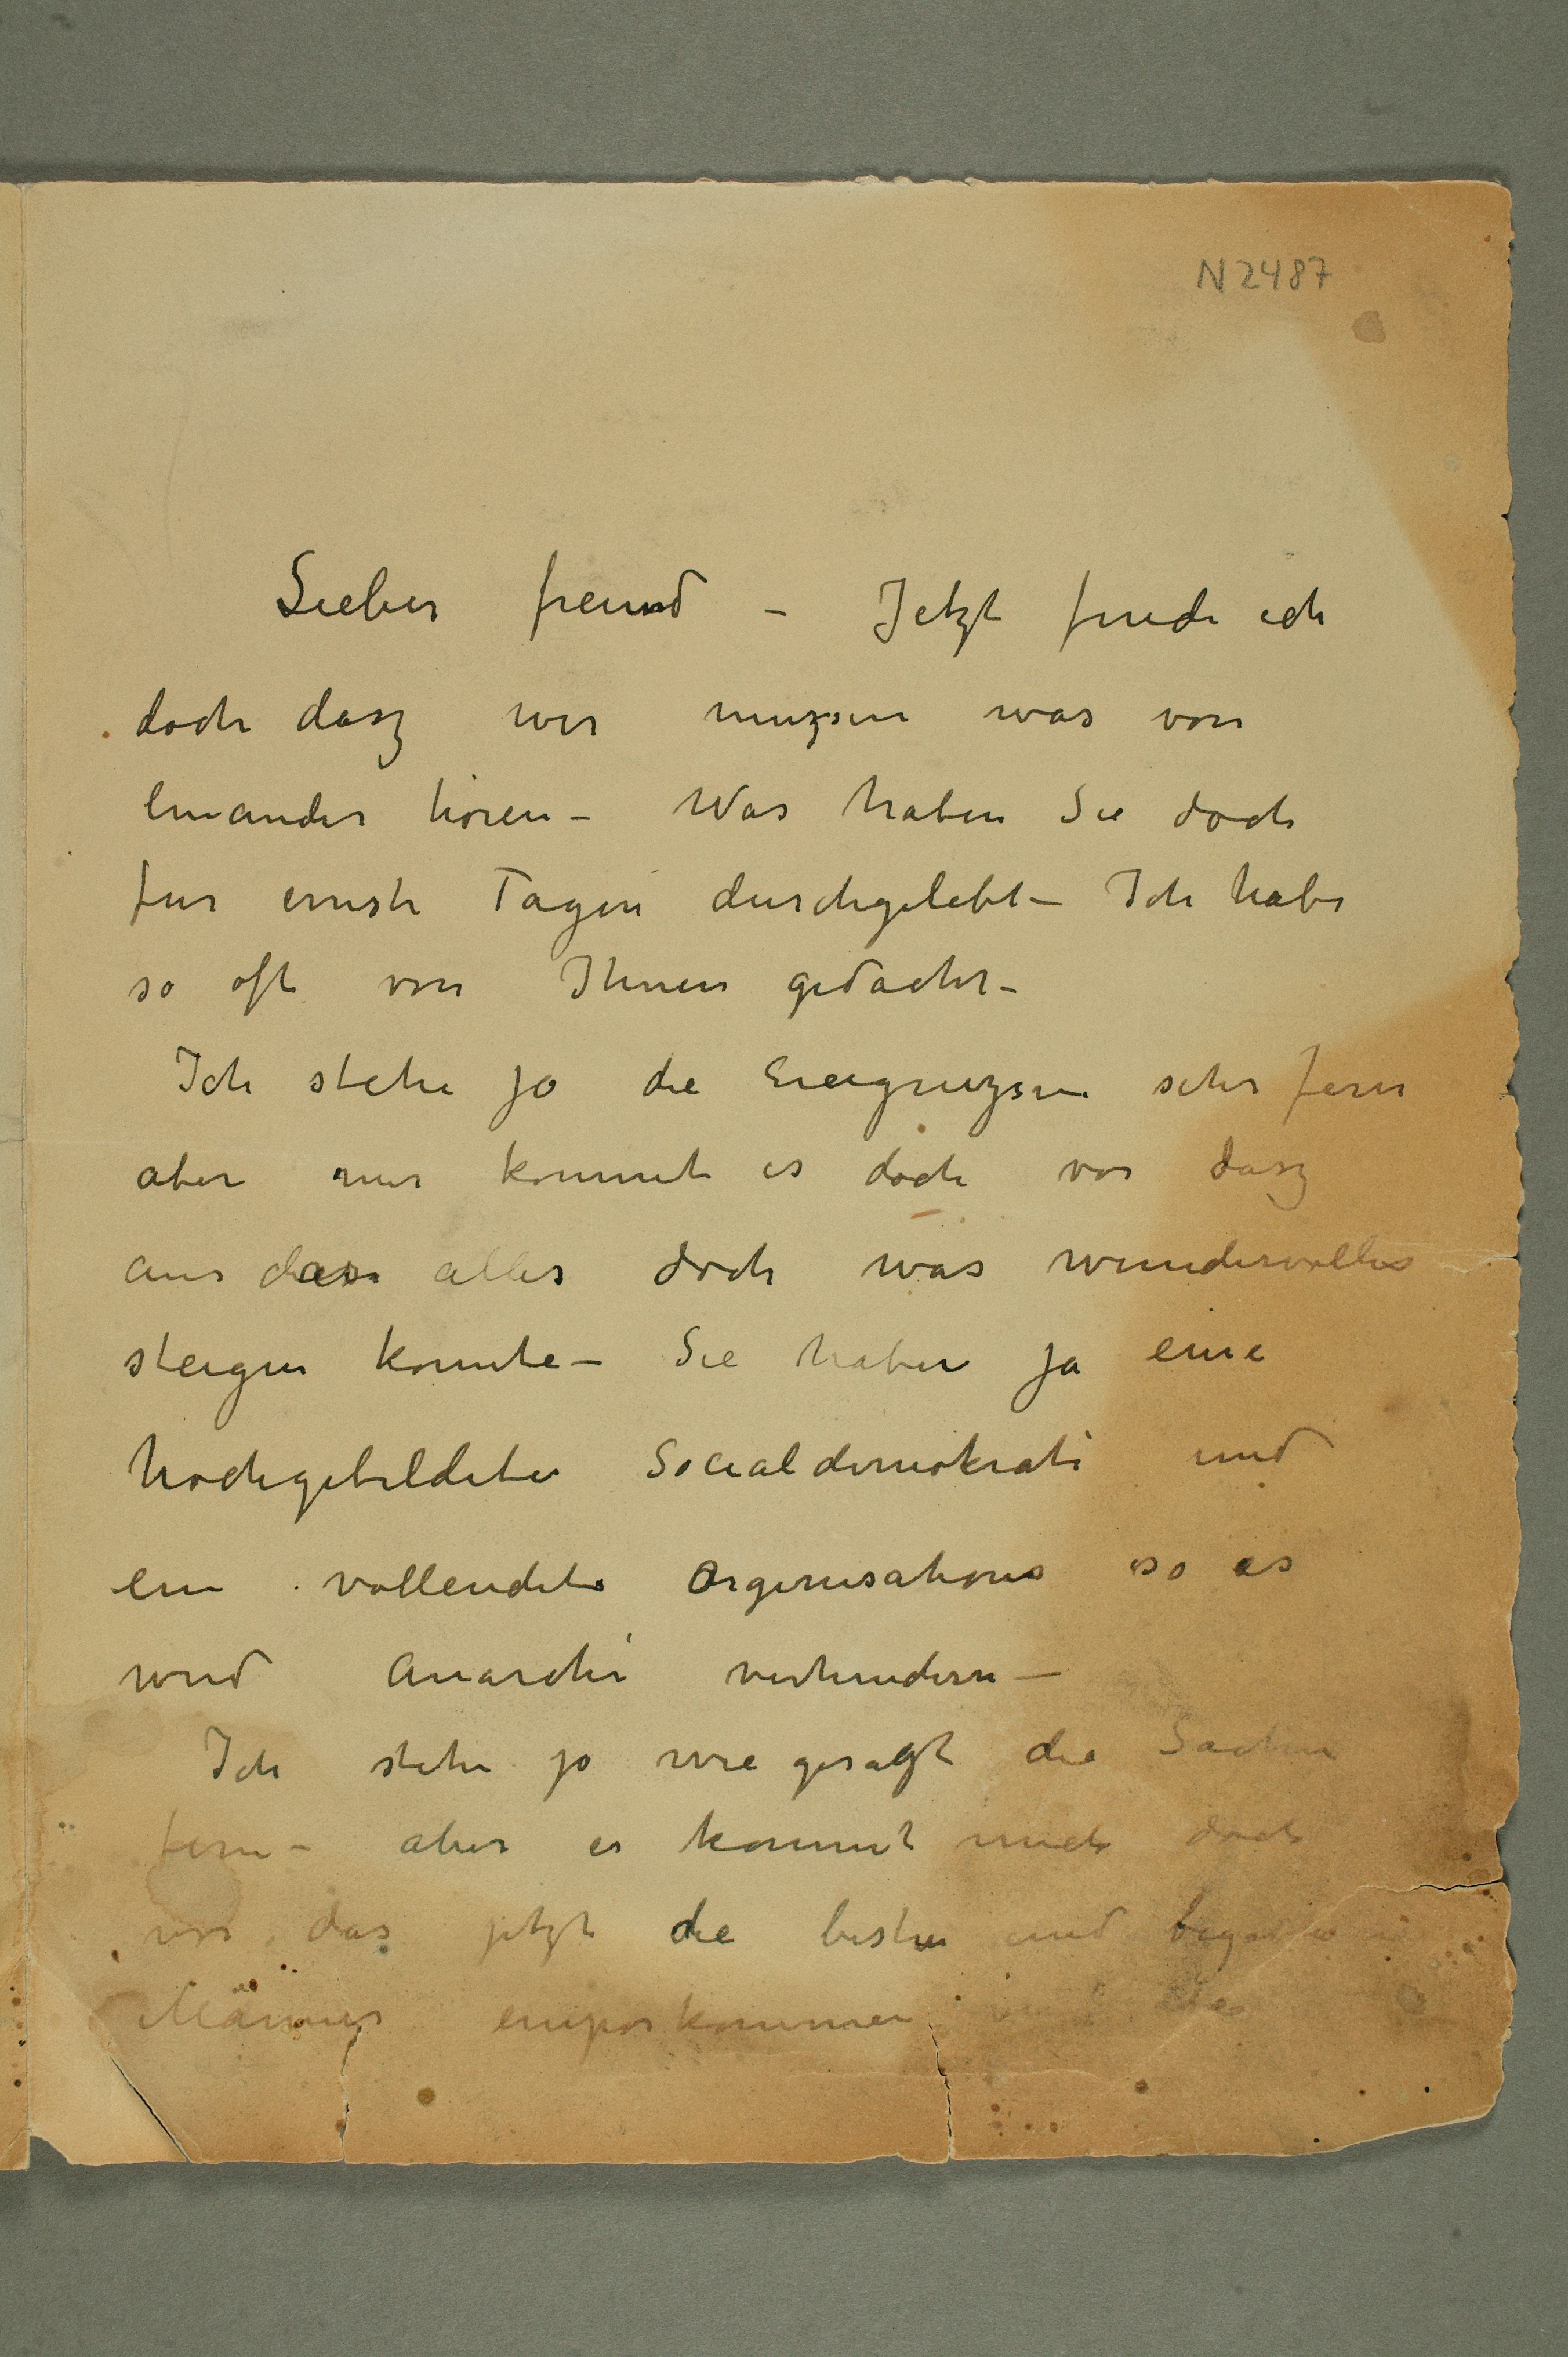 N 2487
Lieber freund – Jetzt finde ich
doch dasz wir muzsen was von
einander hören – Was haben Sie doch
fur ernste Tagen durchgelebt – Ich habe
so oft von Ihnen gedacht –
Ich stehe jo die Ereignizsen sehr fern
aber mir kommt es doch vor dasz
aus das alles doch was wundervolles
steigen konnte – Sie haben ja eine
hochgebildete Socialdemokrati und
ein vollendete Orgenisations so es
wird Anarchi verhindern –
Ich stehe jo wie gesagt die Sachen
fern – aber es kommt mich doch
vor das jetzt die besten und
Männer emporkommen